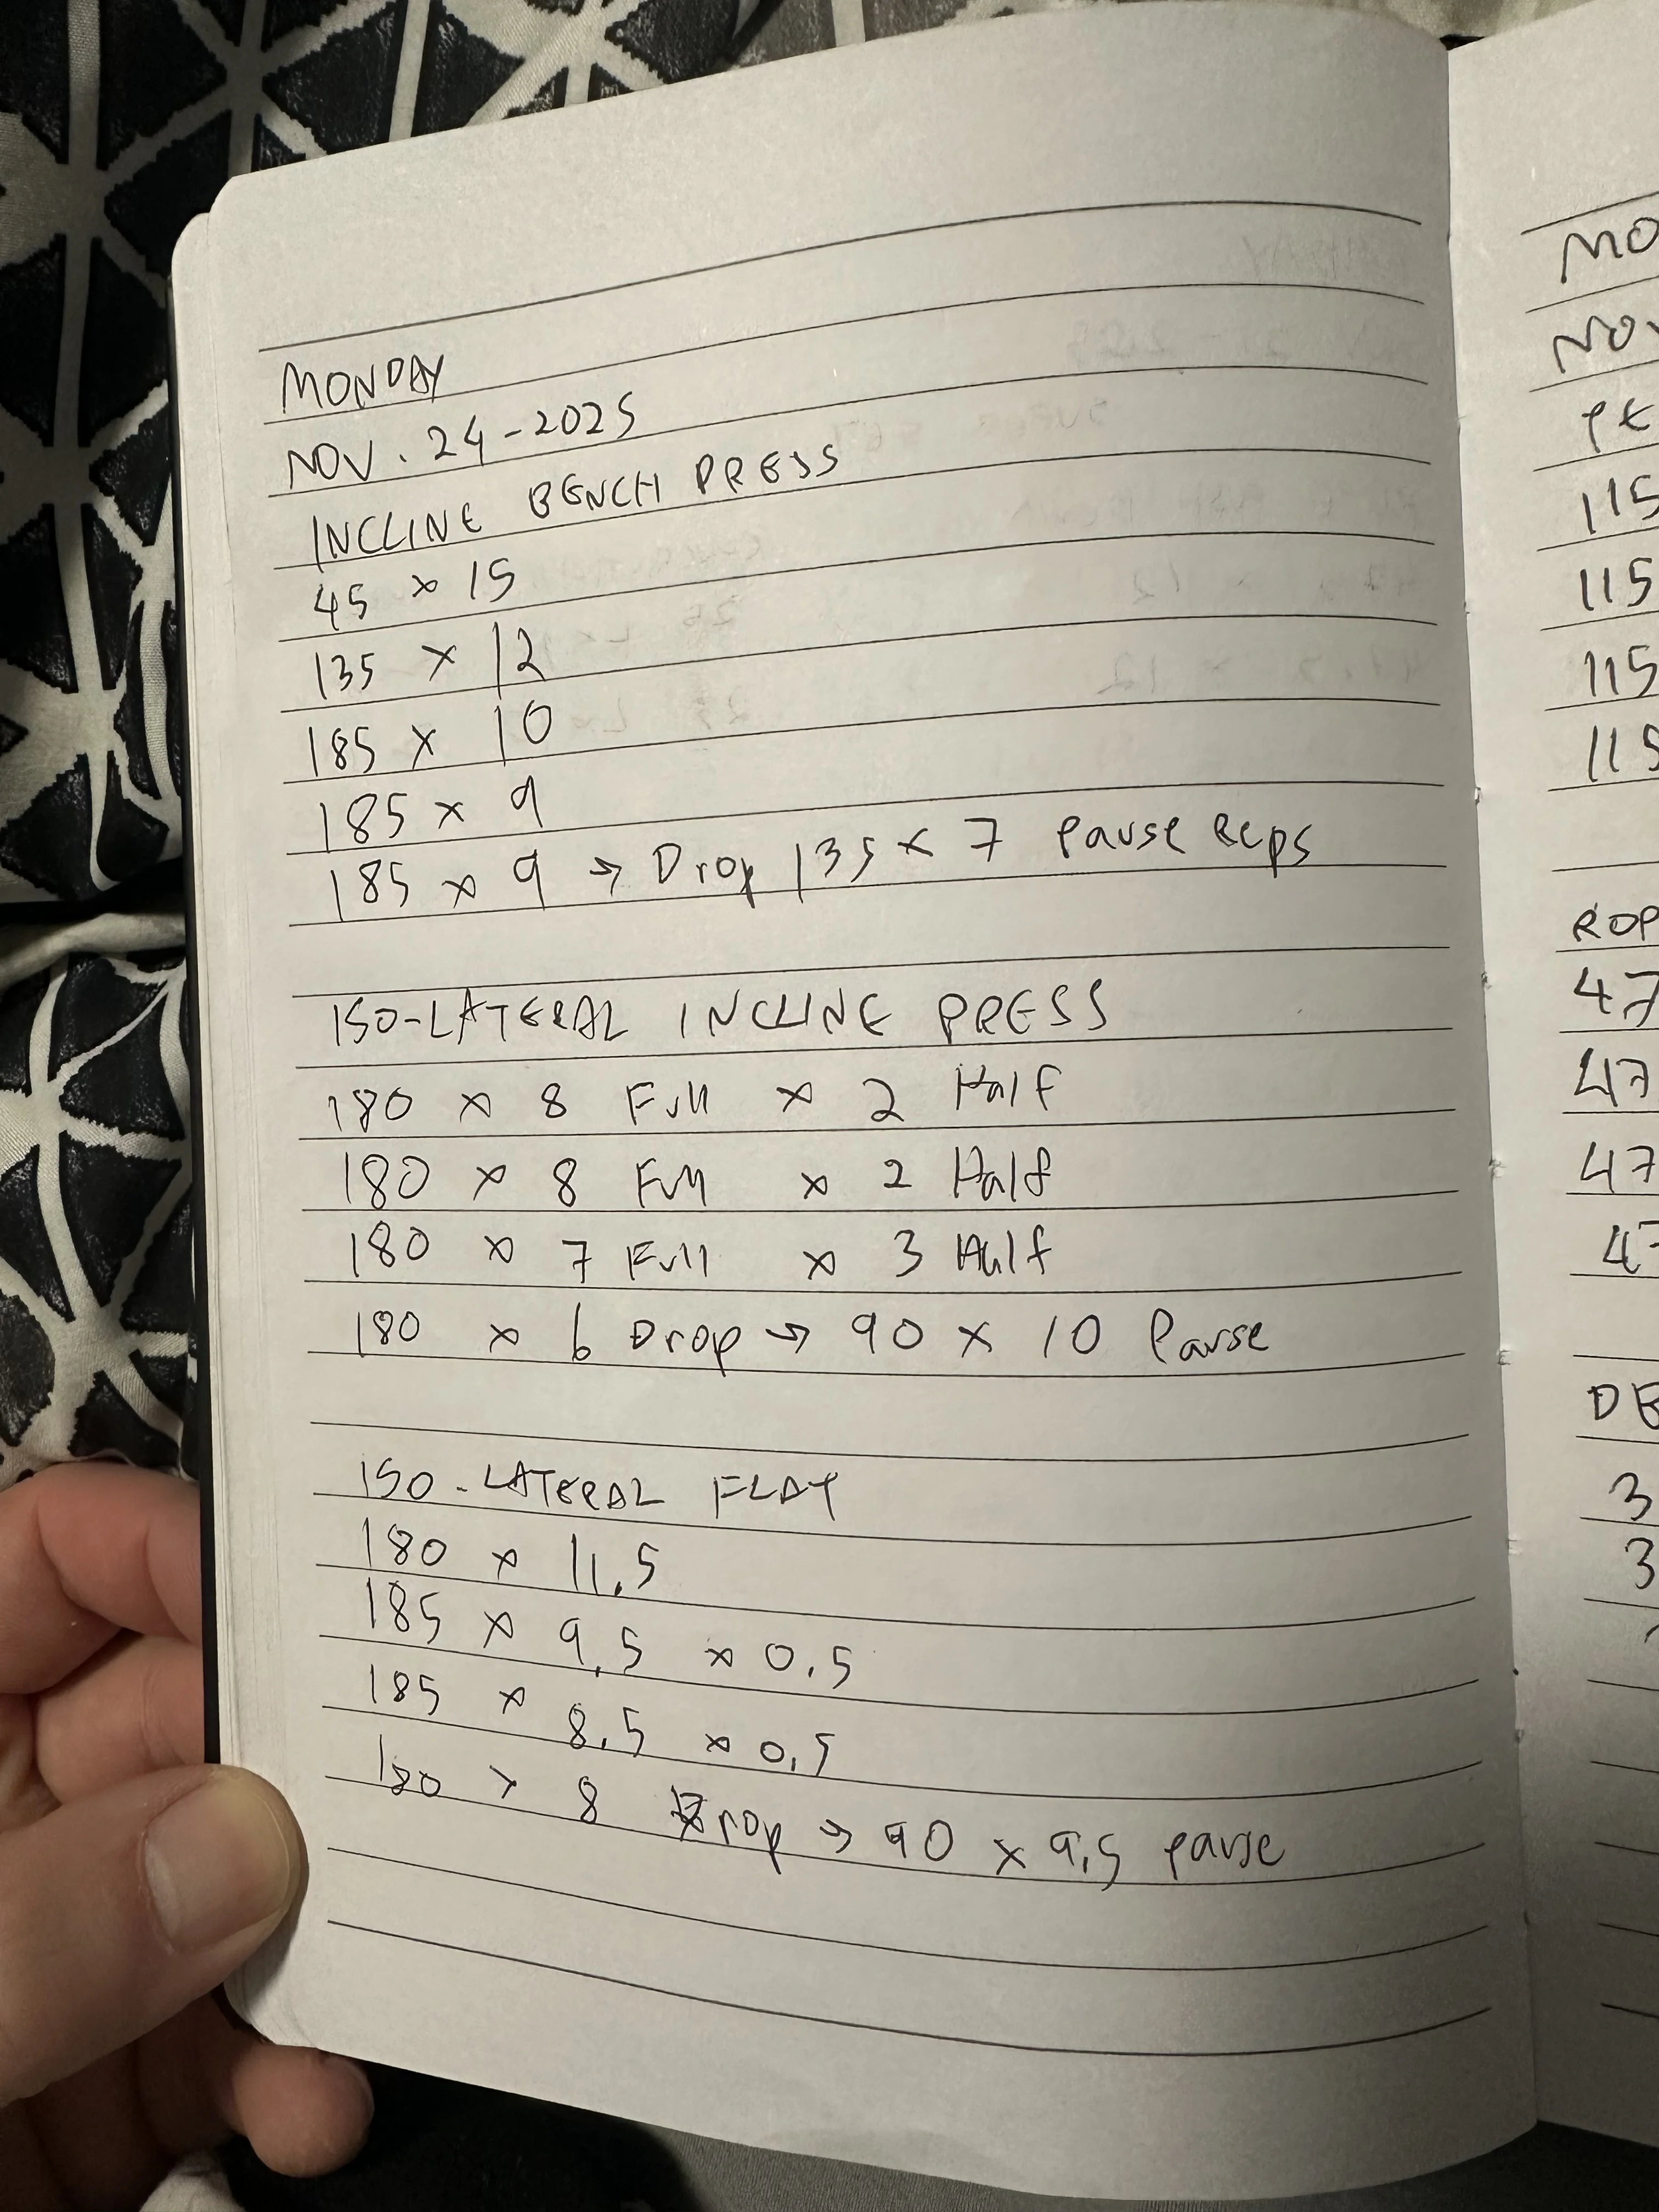 MONDAY
NOV. 24-2025
INCLINE BENCH PRESS
45 x 15
135 x 12
185 x 10
185 x 9
185 x 9 → Drop 135 x 7 Pause Reps
ISO-LATERAL INCLINE PRESS
180 x 8 Full x 2 Half
180 x 8 Full x 2 Half
180 x 7 Full x 3 Half
180 x 6 Drop → 90 x 10 Pause
ISO-LATERAL FLAT
180 x 11.5
185 x 9.5 x 0.5
185 x 8.5 x 0.5
180 x 8 Drop → 90 x 9.5 pause
MO
NOV
PE
115
115
115
115
ROP
47
47
47
47
DB
3
3